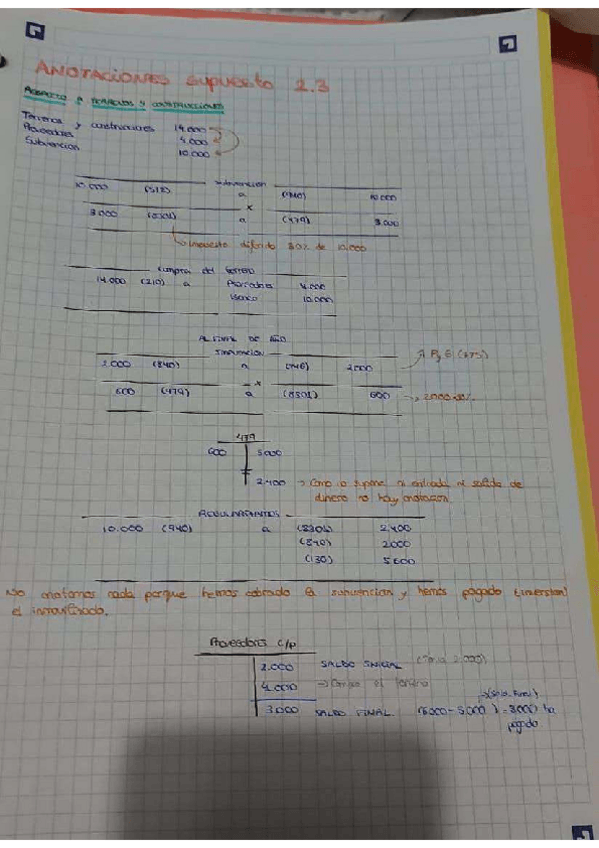 ANOTACIONES supuesto 2.3
RESPECTO A TERRENOS Y CONSTRUCCIONES
Terrenos y construcciones 14.000
Proveedores 4.000
Subvención 10.000
Subvención
10.000 (572) a (940) 10.000
x
3.000 (8301) a (479) 3.000
Impuesto diferido 30% de 10.000
Compra del terreno
14.000 (210) a Proveedores 4.000
Banco 10.000
AL FINAL DE AÑO
2.000 (840) a (746) 2.000
A PyG (
x
600 (479) a (8301) 600
479
600
2.400 → Como no supone ni entrada ni salida de
dinero no hay anotación.
10.000 (940) a (8301) 2.400
(840) 2.000
(130) 5.600
No anotamos nada porque hemos cobrado la subvención y hemos pagado (inversión)
el inmovilizado.
Proveedores c/p
2.000 SALDO INICIAL
4.000 → Compra el terreno
→ (Saldo Final)
3.000 SALDO FINAL (6000 - = 3.000 ha
pagado